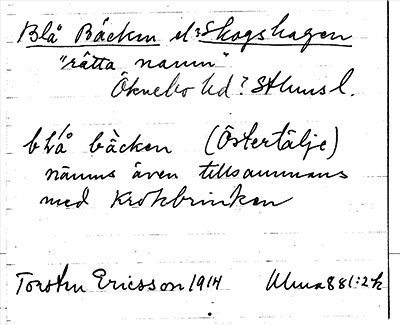 Blå Bäcken el. Skogshagen
"rätta namn"
Öknebo hd? Sthms l.
blå bäcken (Östertälje)
nämns även tillsammans
med Krokbrinken
Torsten Ericsson 1914 Ulma 881:2 k